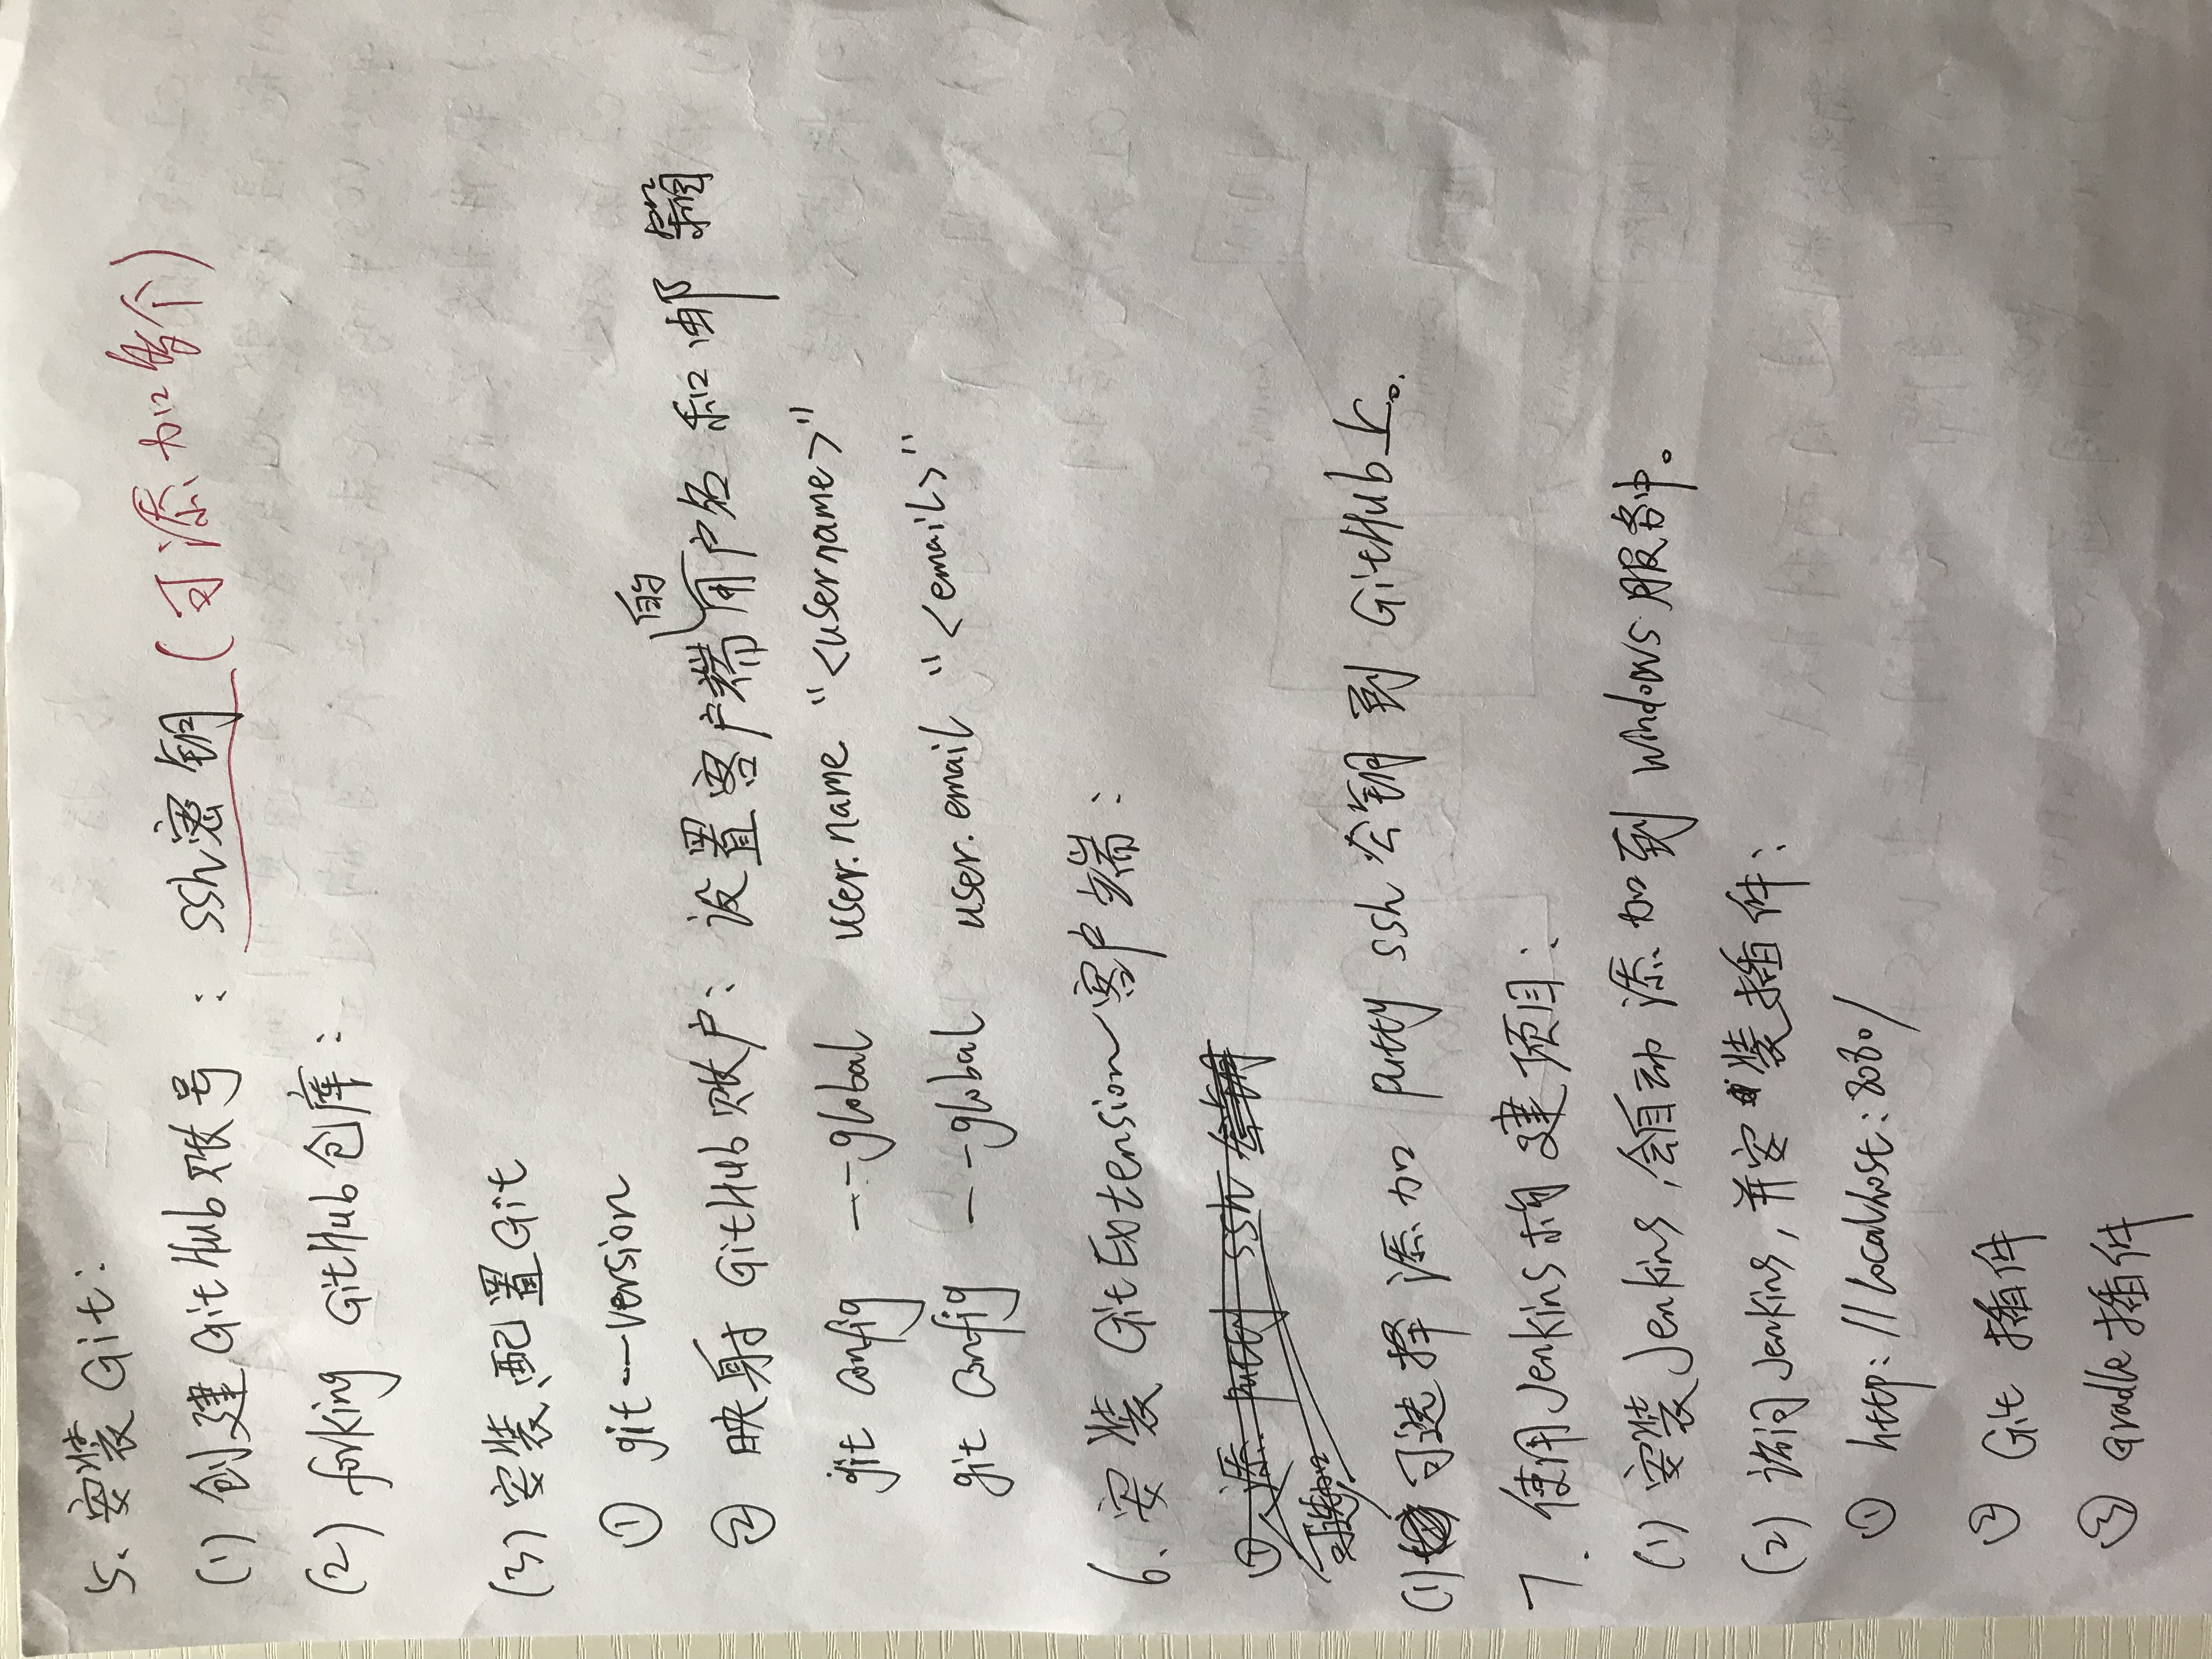 5、安装Git:
(1) 创建GitHub账号 : ssh密钥 (可添加多个)
(2) forking GitHub仓库:
(3) 安装、配置Git
① git --version
② 映射GitHub账户: 设置客户端的用户名和邮箱
git config --global user.name "<username>"
git config --global user.email "<email>"
6、安装GitExtension客户端:
① 添 putty ssh 公钥
可选加
(1) 可选择添加 putty ssh 公钥到GitHub上。
7. 使用Jenkins构建项目:
(1) 安装Jenkins,会自动添加到windows服务中。
(2) 访问Jenkins,并安装插件:
① http://localhost:8080/
② Git 插件
③ Gradle插件